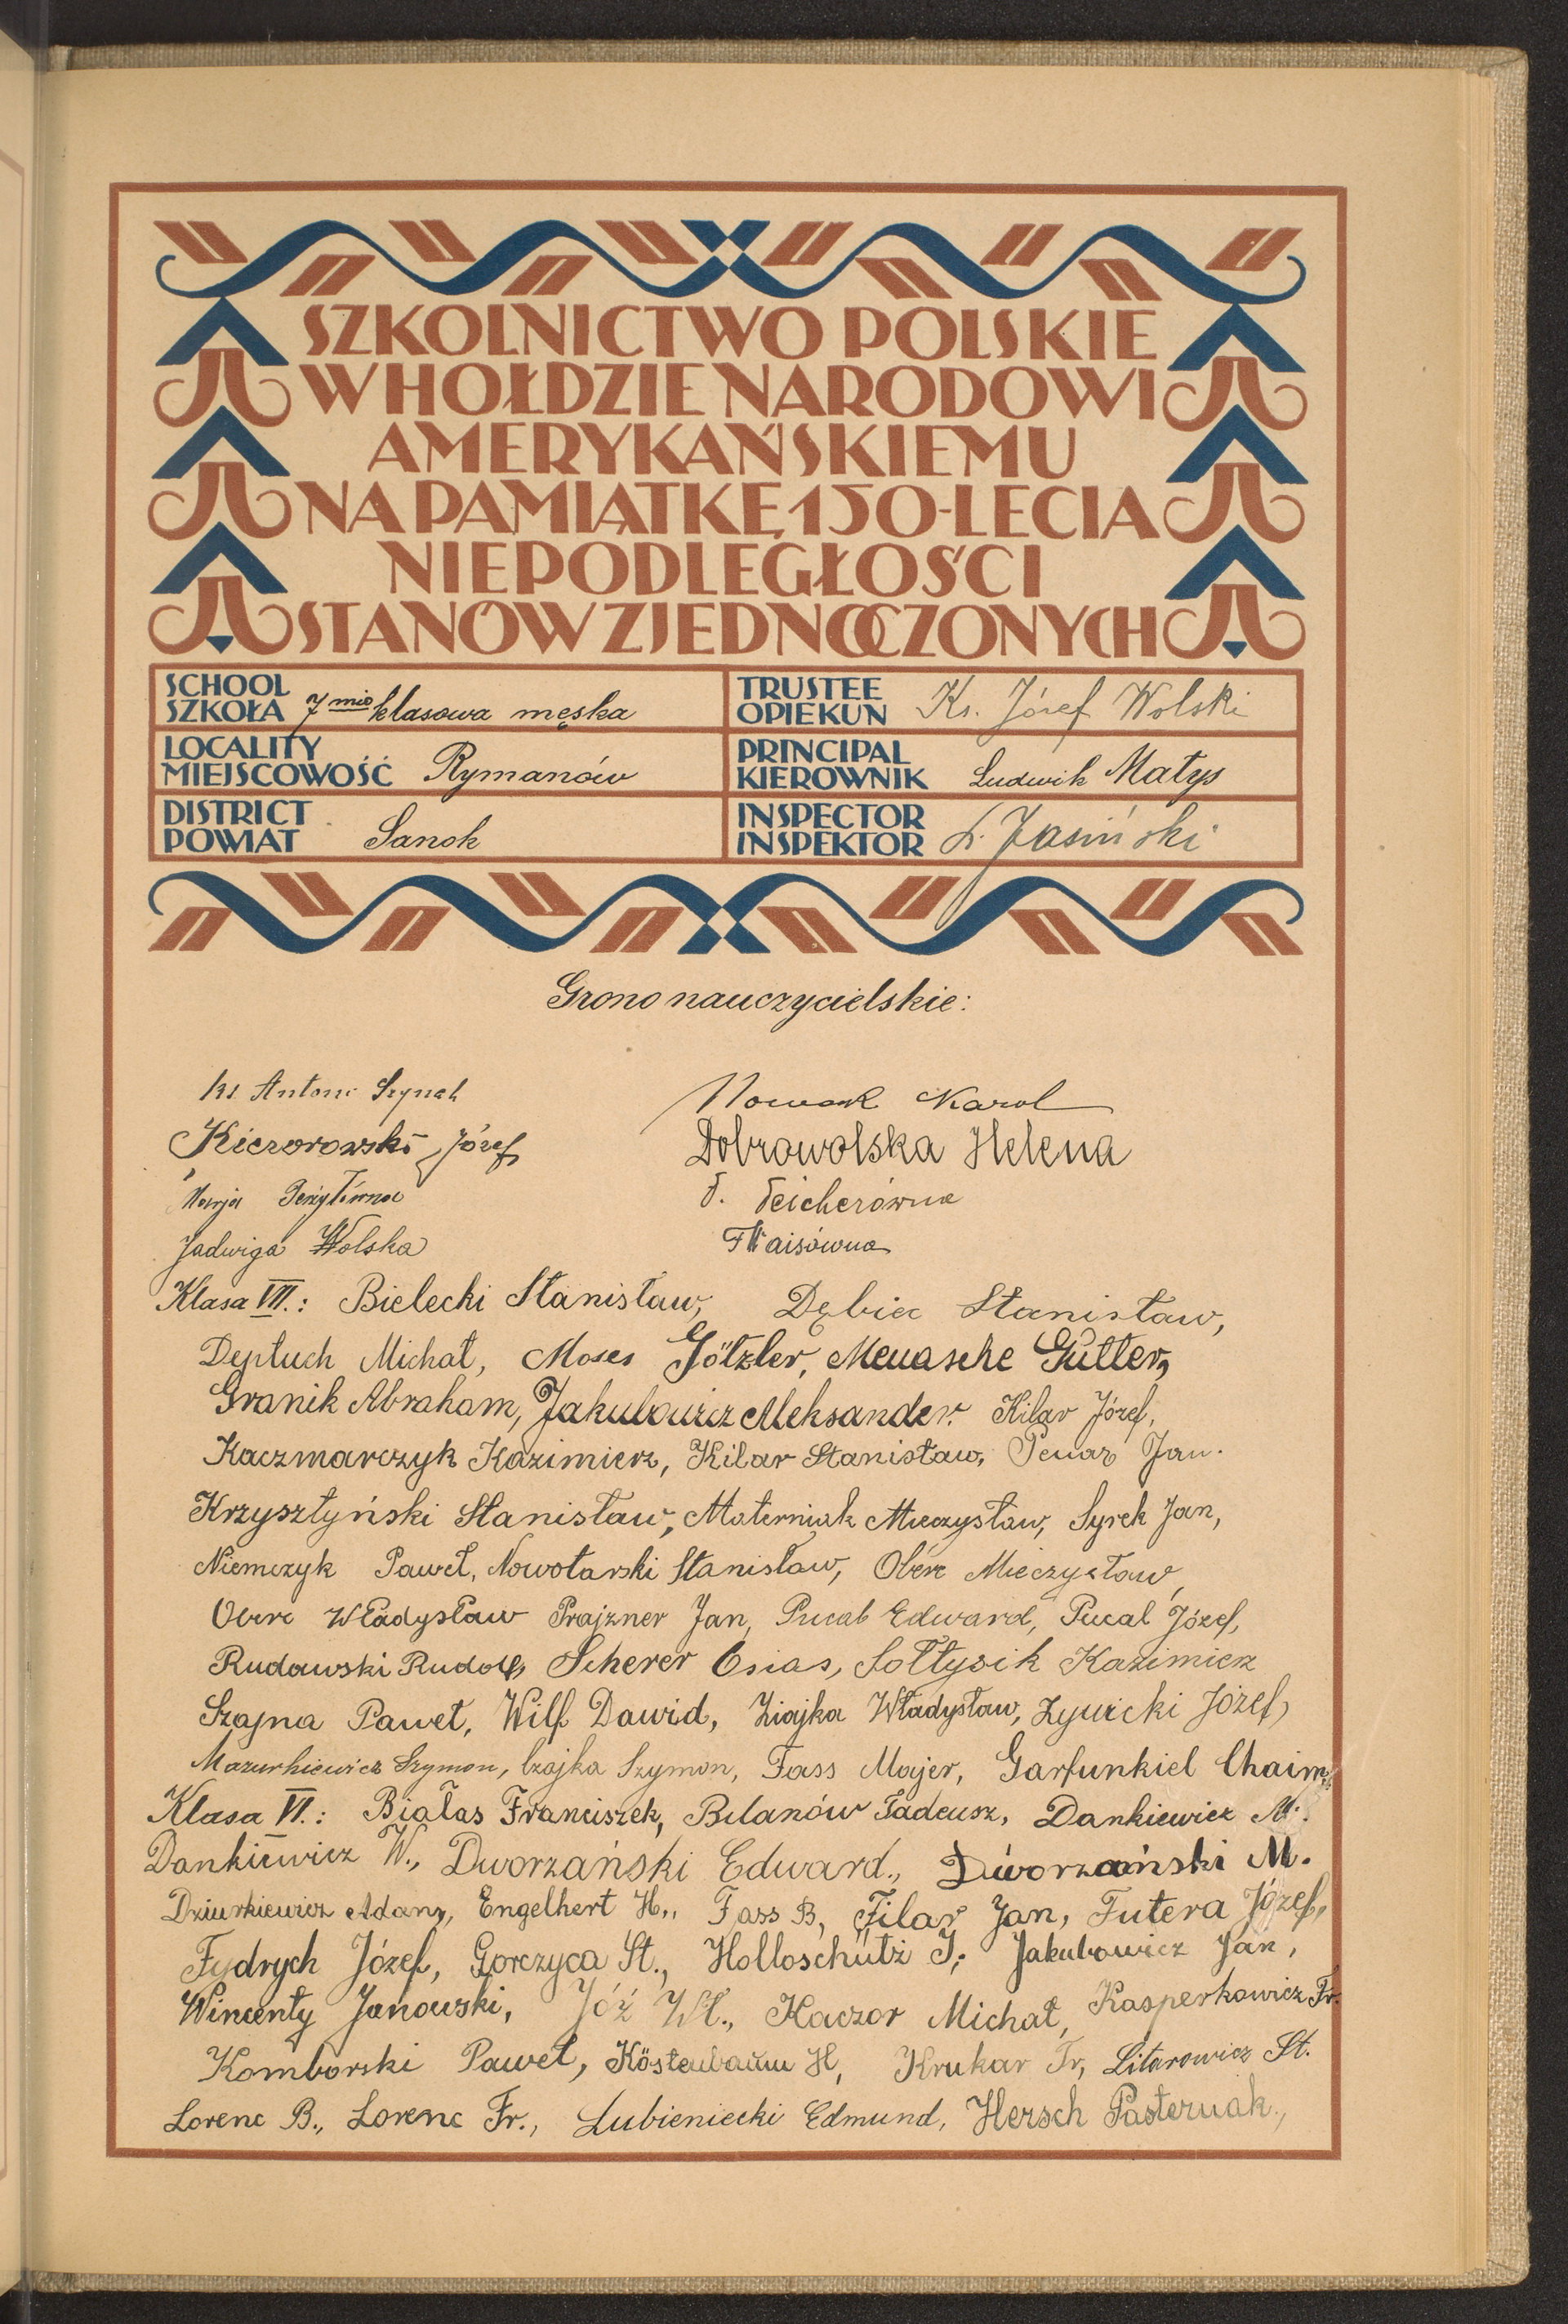 SZKOLNICTWO POLSKIE
W HOŁDZIE NARODOWI
AMERYKAŃSKIEMU
NA PAMIĄTKĘ 150-LECIA
NIEPODLEGŁOŚCI
STANÓW ZJEDNOCZONYCH
SCHOOL
SZKOŁA 7mio klasowa męska
TRUSTEE
OPIEKUN Ks. Józef Wolski
LOCALITY
MIEJSCOWOŚĆ Rymanów
PRINCIPAL
KIEROWNIK Ludwik Matys
DISTRICT
POWIAT Sanok
INSPECTOR
INSPEKTOR L. Jasiński
Grono nauczycielskie:
ks Antoni
Nowak Karol
Kiczorowski Józef
Dobrowolska Helena
Marja
F. Teicherówna
Jadwiga Wolska
Klasa VII.: Bielecki Stanisław, Dębiec Stanisław,
Deptuch Michał, Moses Götzler, Menasche Gutter,
Granik Abraham, Jakubowicz Aleksander. Kilar Józef,
Kaczmarczyk Kazimierz, Kilar Stanisław, Penar Jan.
Krzysztyński Stanisław, Materniak Mieczysław, Syrek Jan,
Niemczyk Paweł, Nowotarski Stanisław, Oberc Mieczysław,
Oberc Władysław Prajzner Jan, Pucał Edward, Pucał Józef,
Rudawski Rudolf, Scherer Osias, Sołtysik Kazimierz
Szajna Paweł, Wilf Dawid, Ziajka Władysław, Żywicki Józef,
Mazurkiewicz Szymon, Czajka Szymon, Fass Majer, Garfunkiel Chaim,
Klasa VI.: Białas Franciszek, Bilanów Tadeusz, Dankiewicz M.
Dankiewicz W., Dworzański Edward., Dworzański M.
Dziurkiewicz Adam, Engelhert H., Fass B, Filar Jan, Futera Józef,
Fydrych Józef, Gorczyca St., Holloschütz J, Jakubowicz Jan,
Wincenty Janowski, Jóź Wł., Kaczor Michał, Kasperkowicz Fr.
Komborski Paweł, Köstenbaum H, Krukar Fr, Litarowicz St.
Lorenc B., Lorenc Fr., Lubieniecki Edmund, Hersch Pasternak,